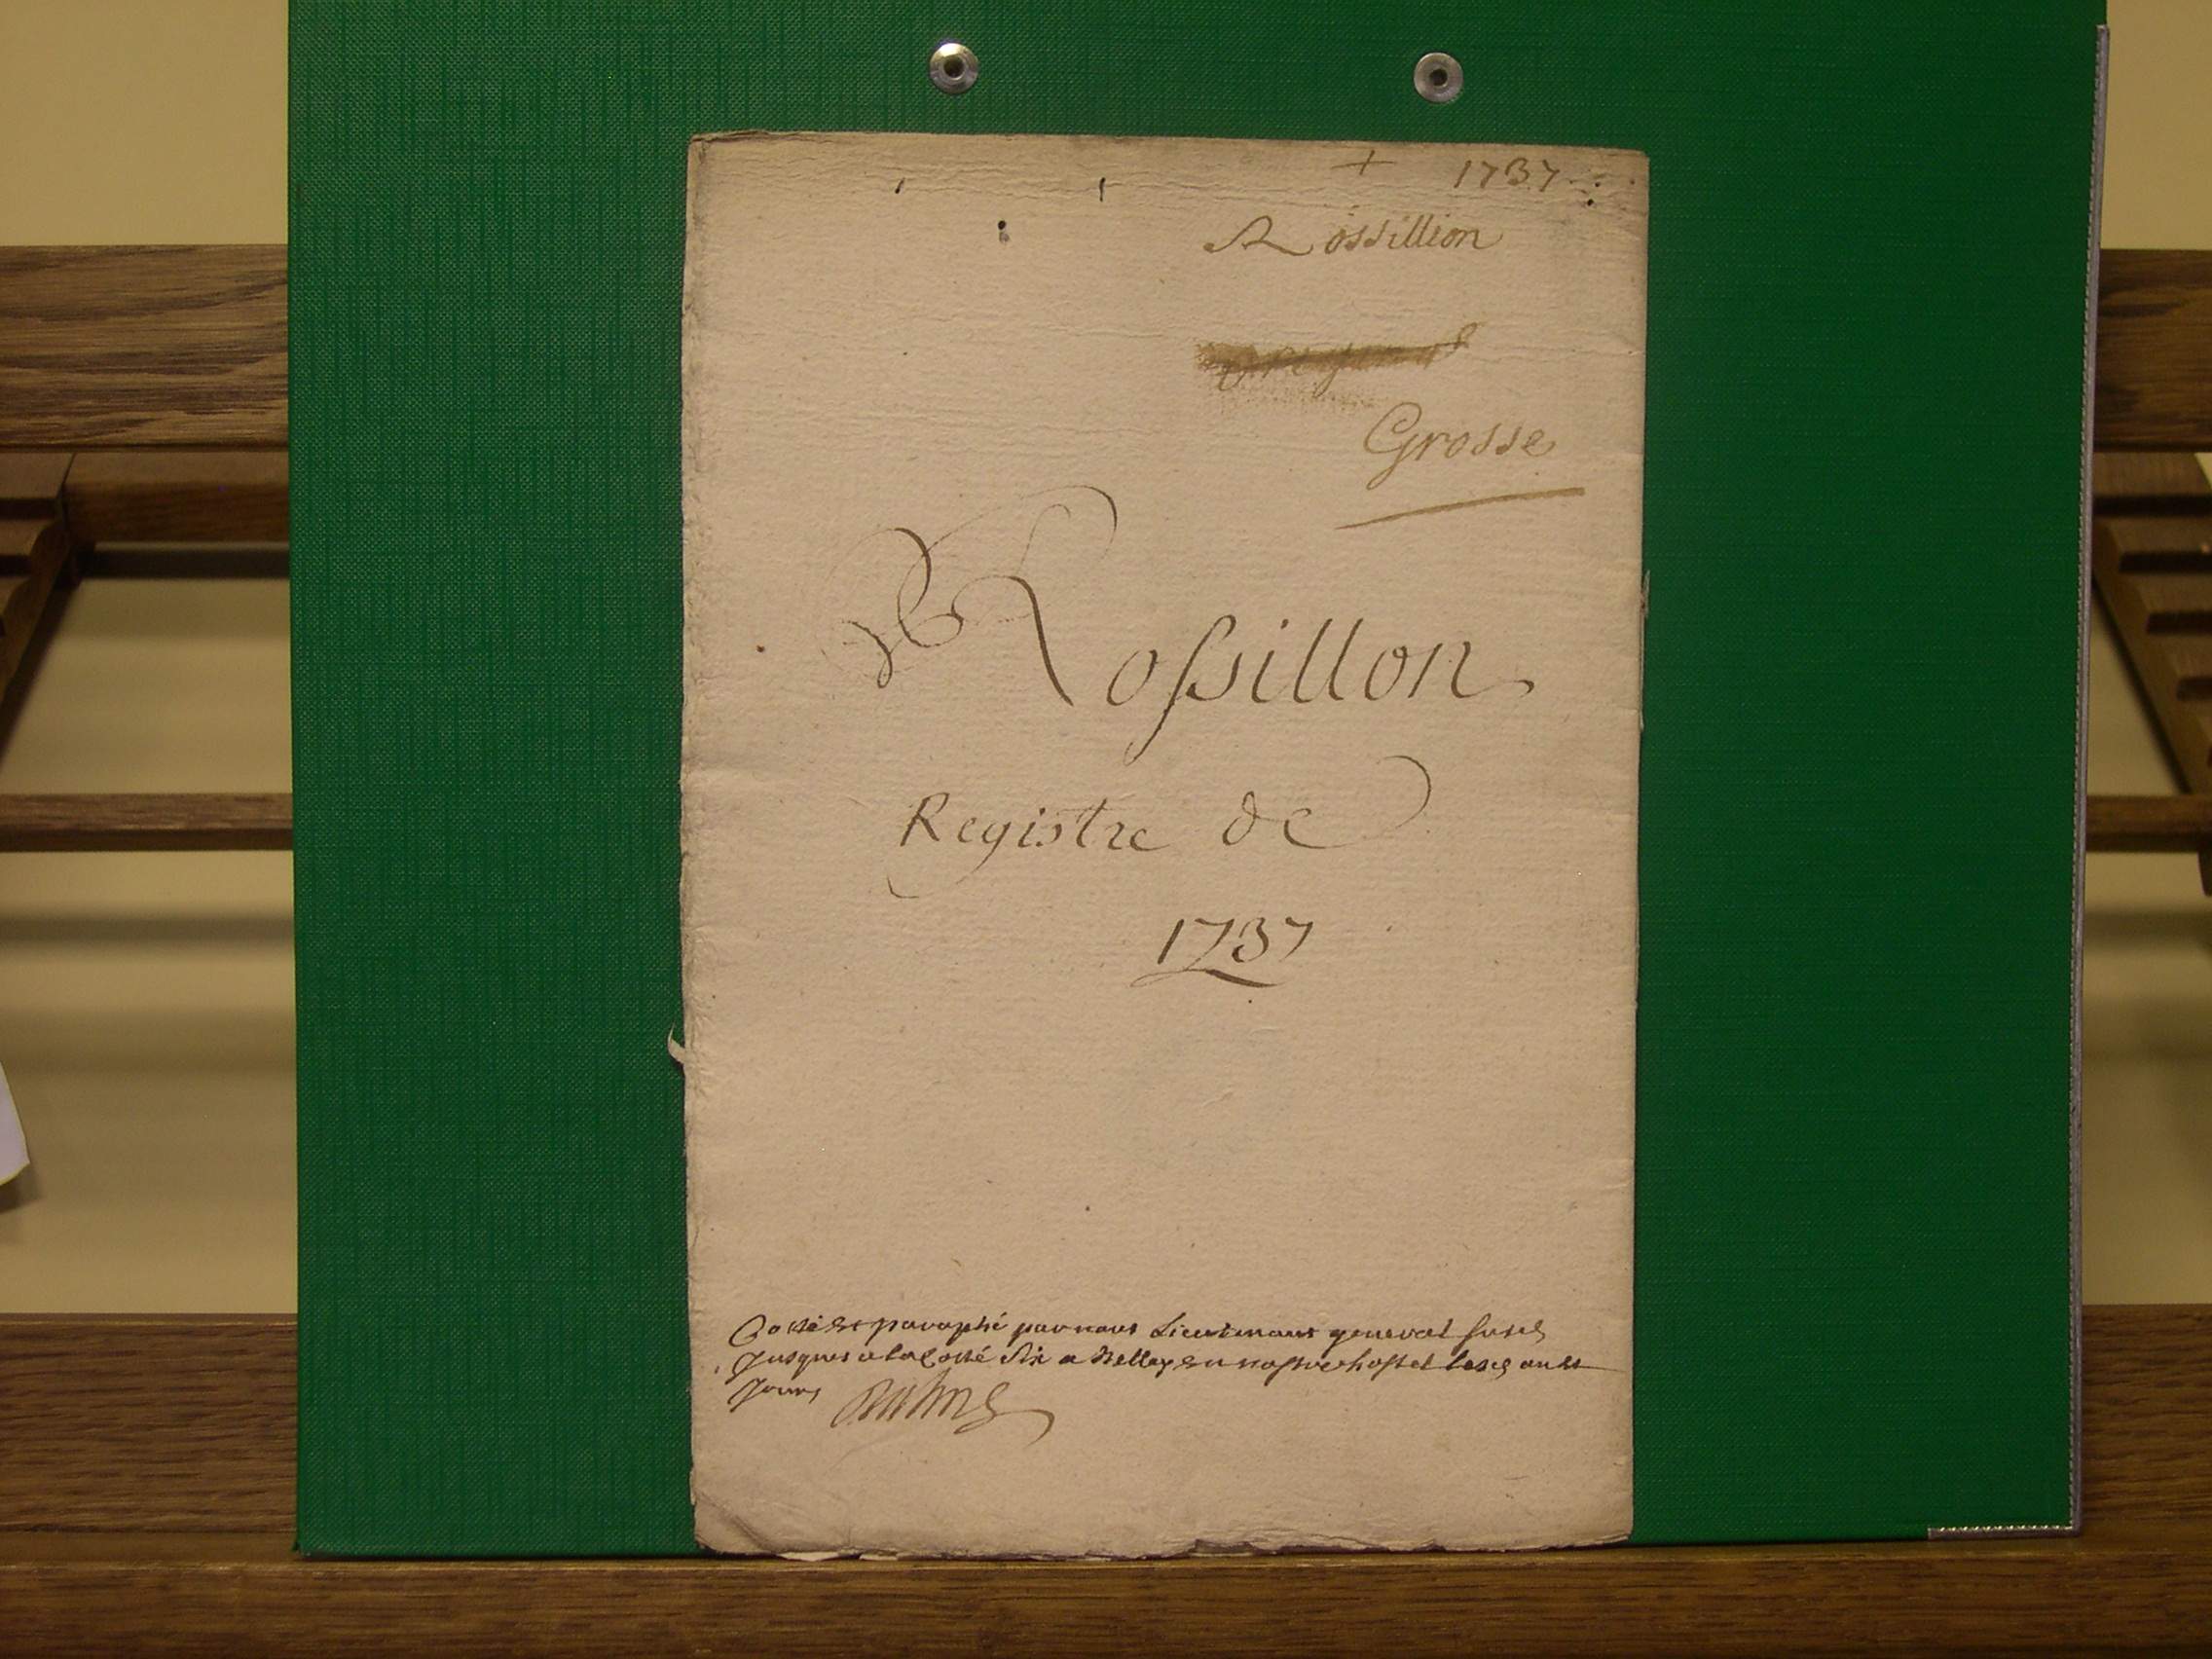 + 1737
Rossillion
Grosse
Rossillon
Registre de
1737
Cotté et paraphé par nous Lieutenant general susd
Jusques a la Cotté Six a Belley en nostre hostel lesd an et
Jours